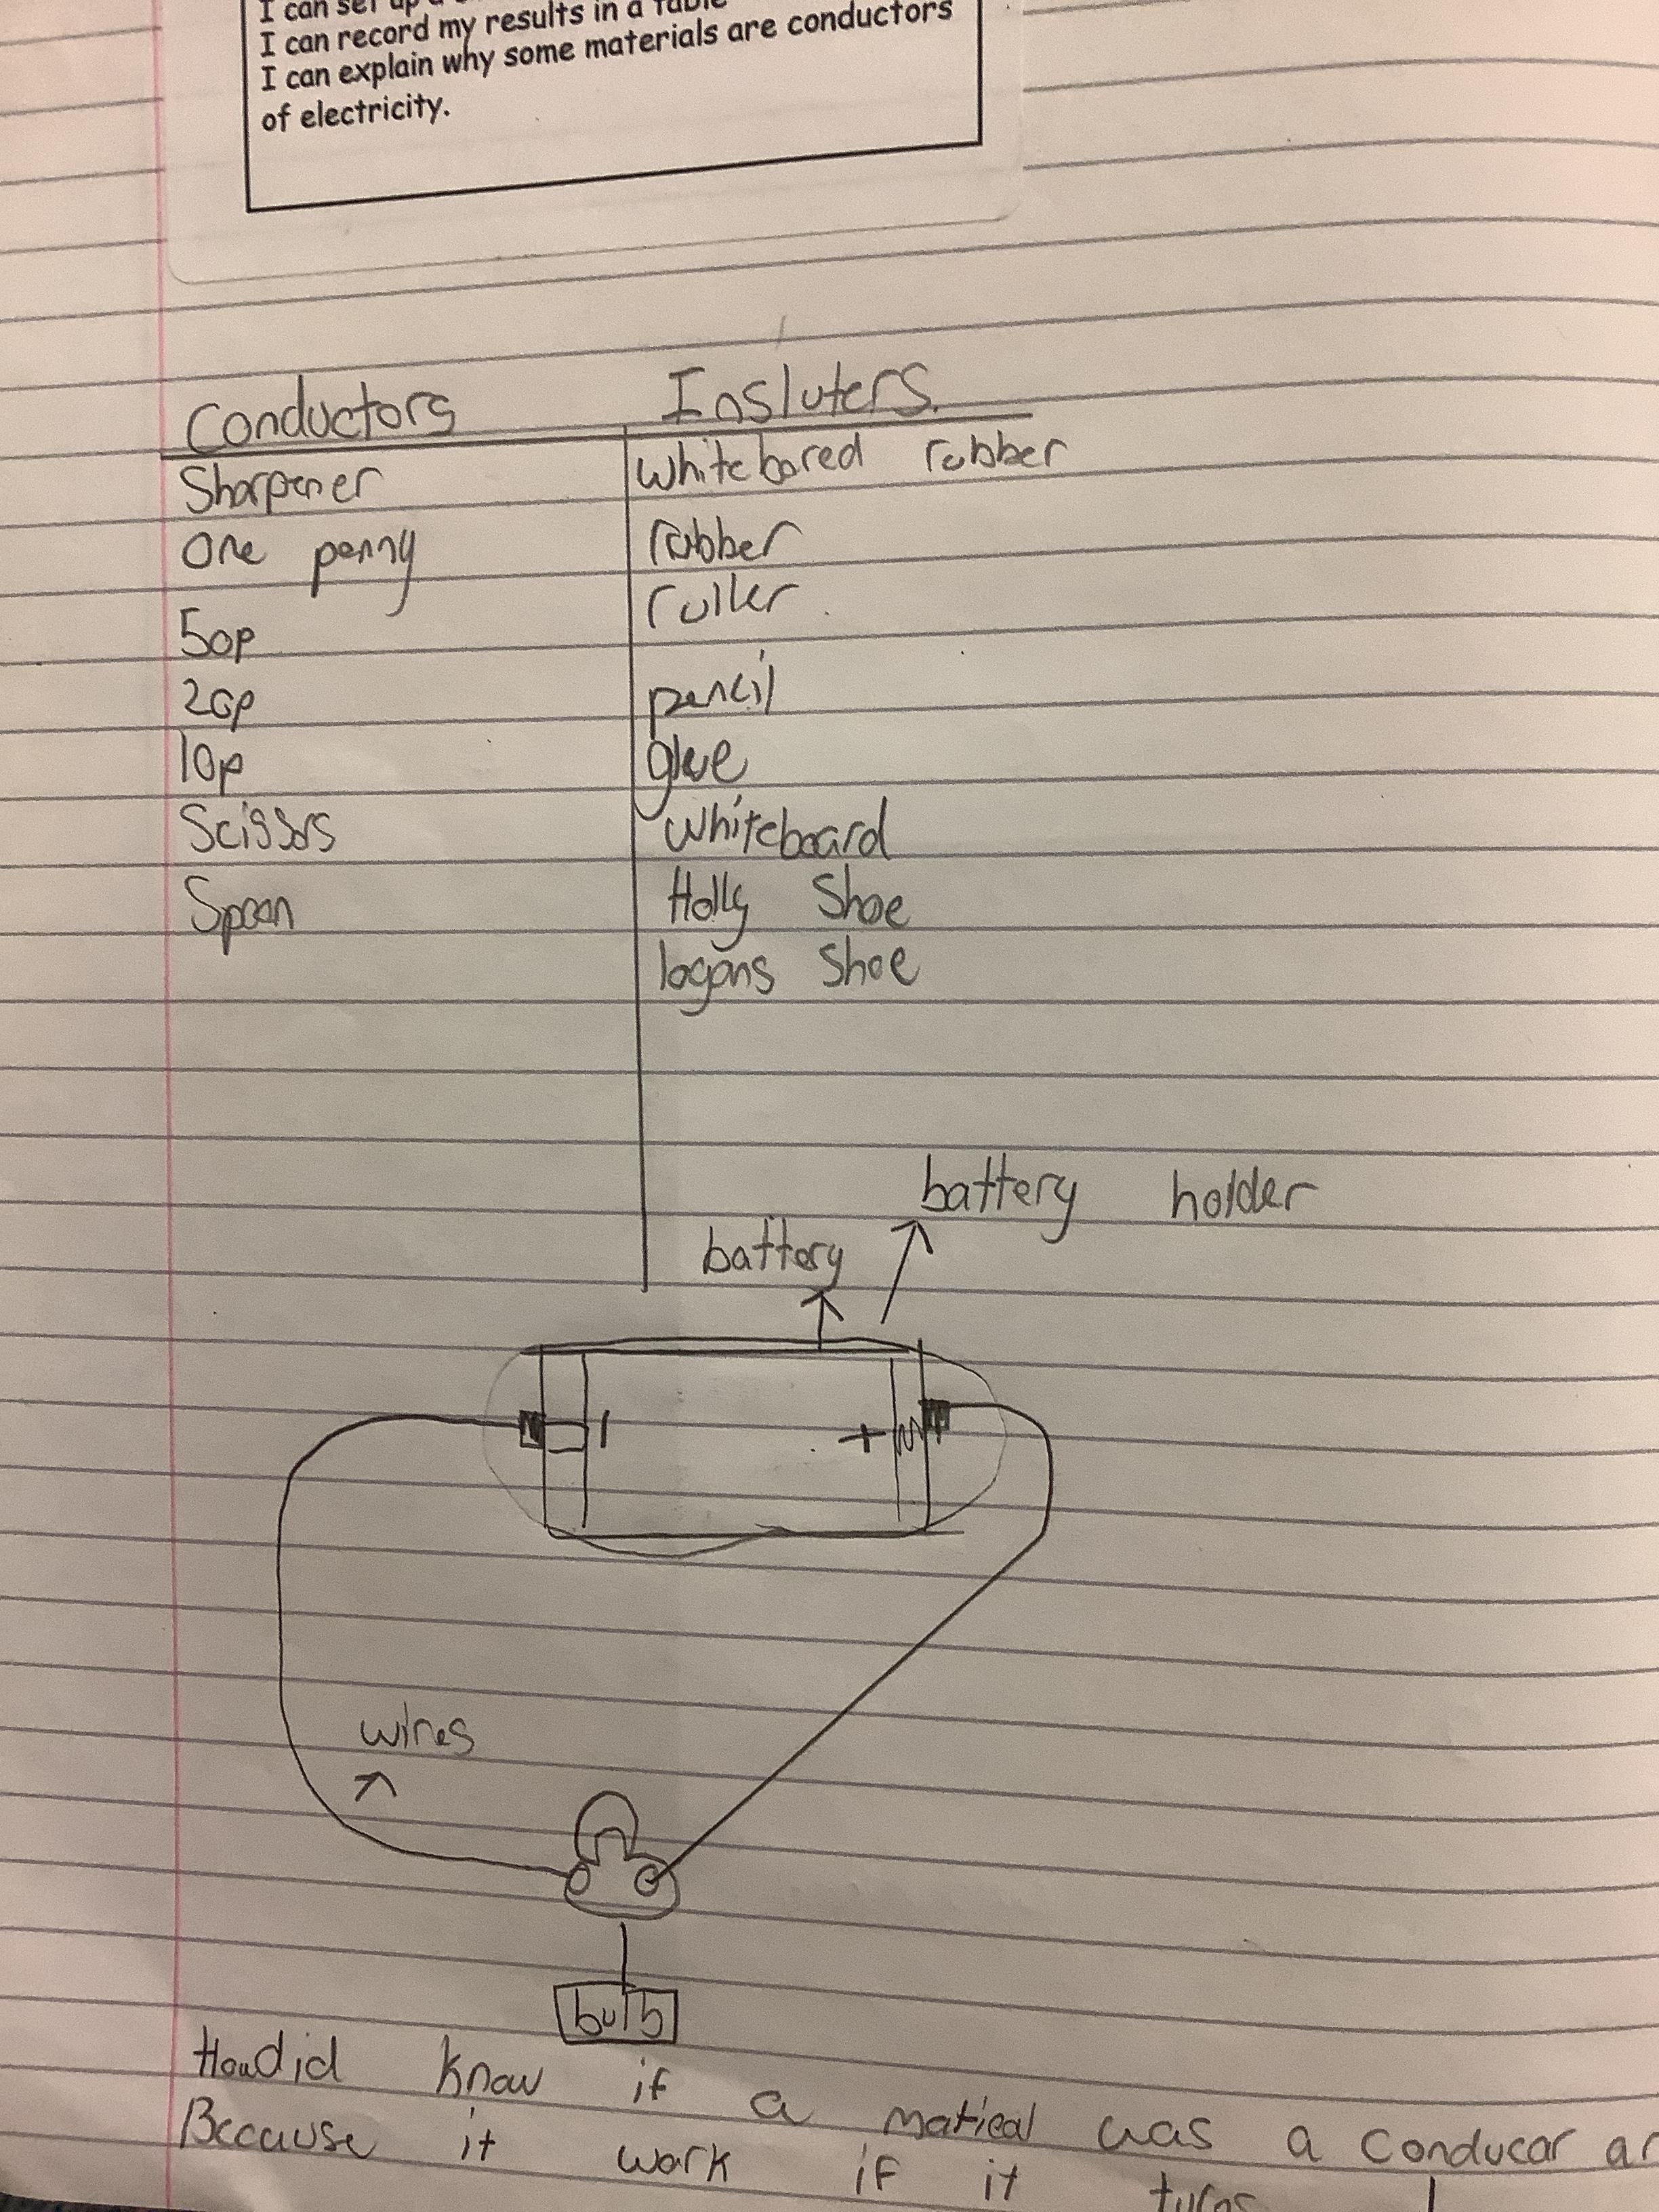 I can set up a
I can record my results in a table
I can explain why some materials are conductors
of electricity.
Conductors Insluters.
Sharpener whitebored rubber
One penny rubber
50p ruller
20p pencil
10p glue
Scissors whiteboard
Spoon Holly Shoe
logans Shoe
battery holder
battery
- +
wires
bulb
How did know if a matieal was a conducar
Because it work if it turns